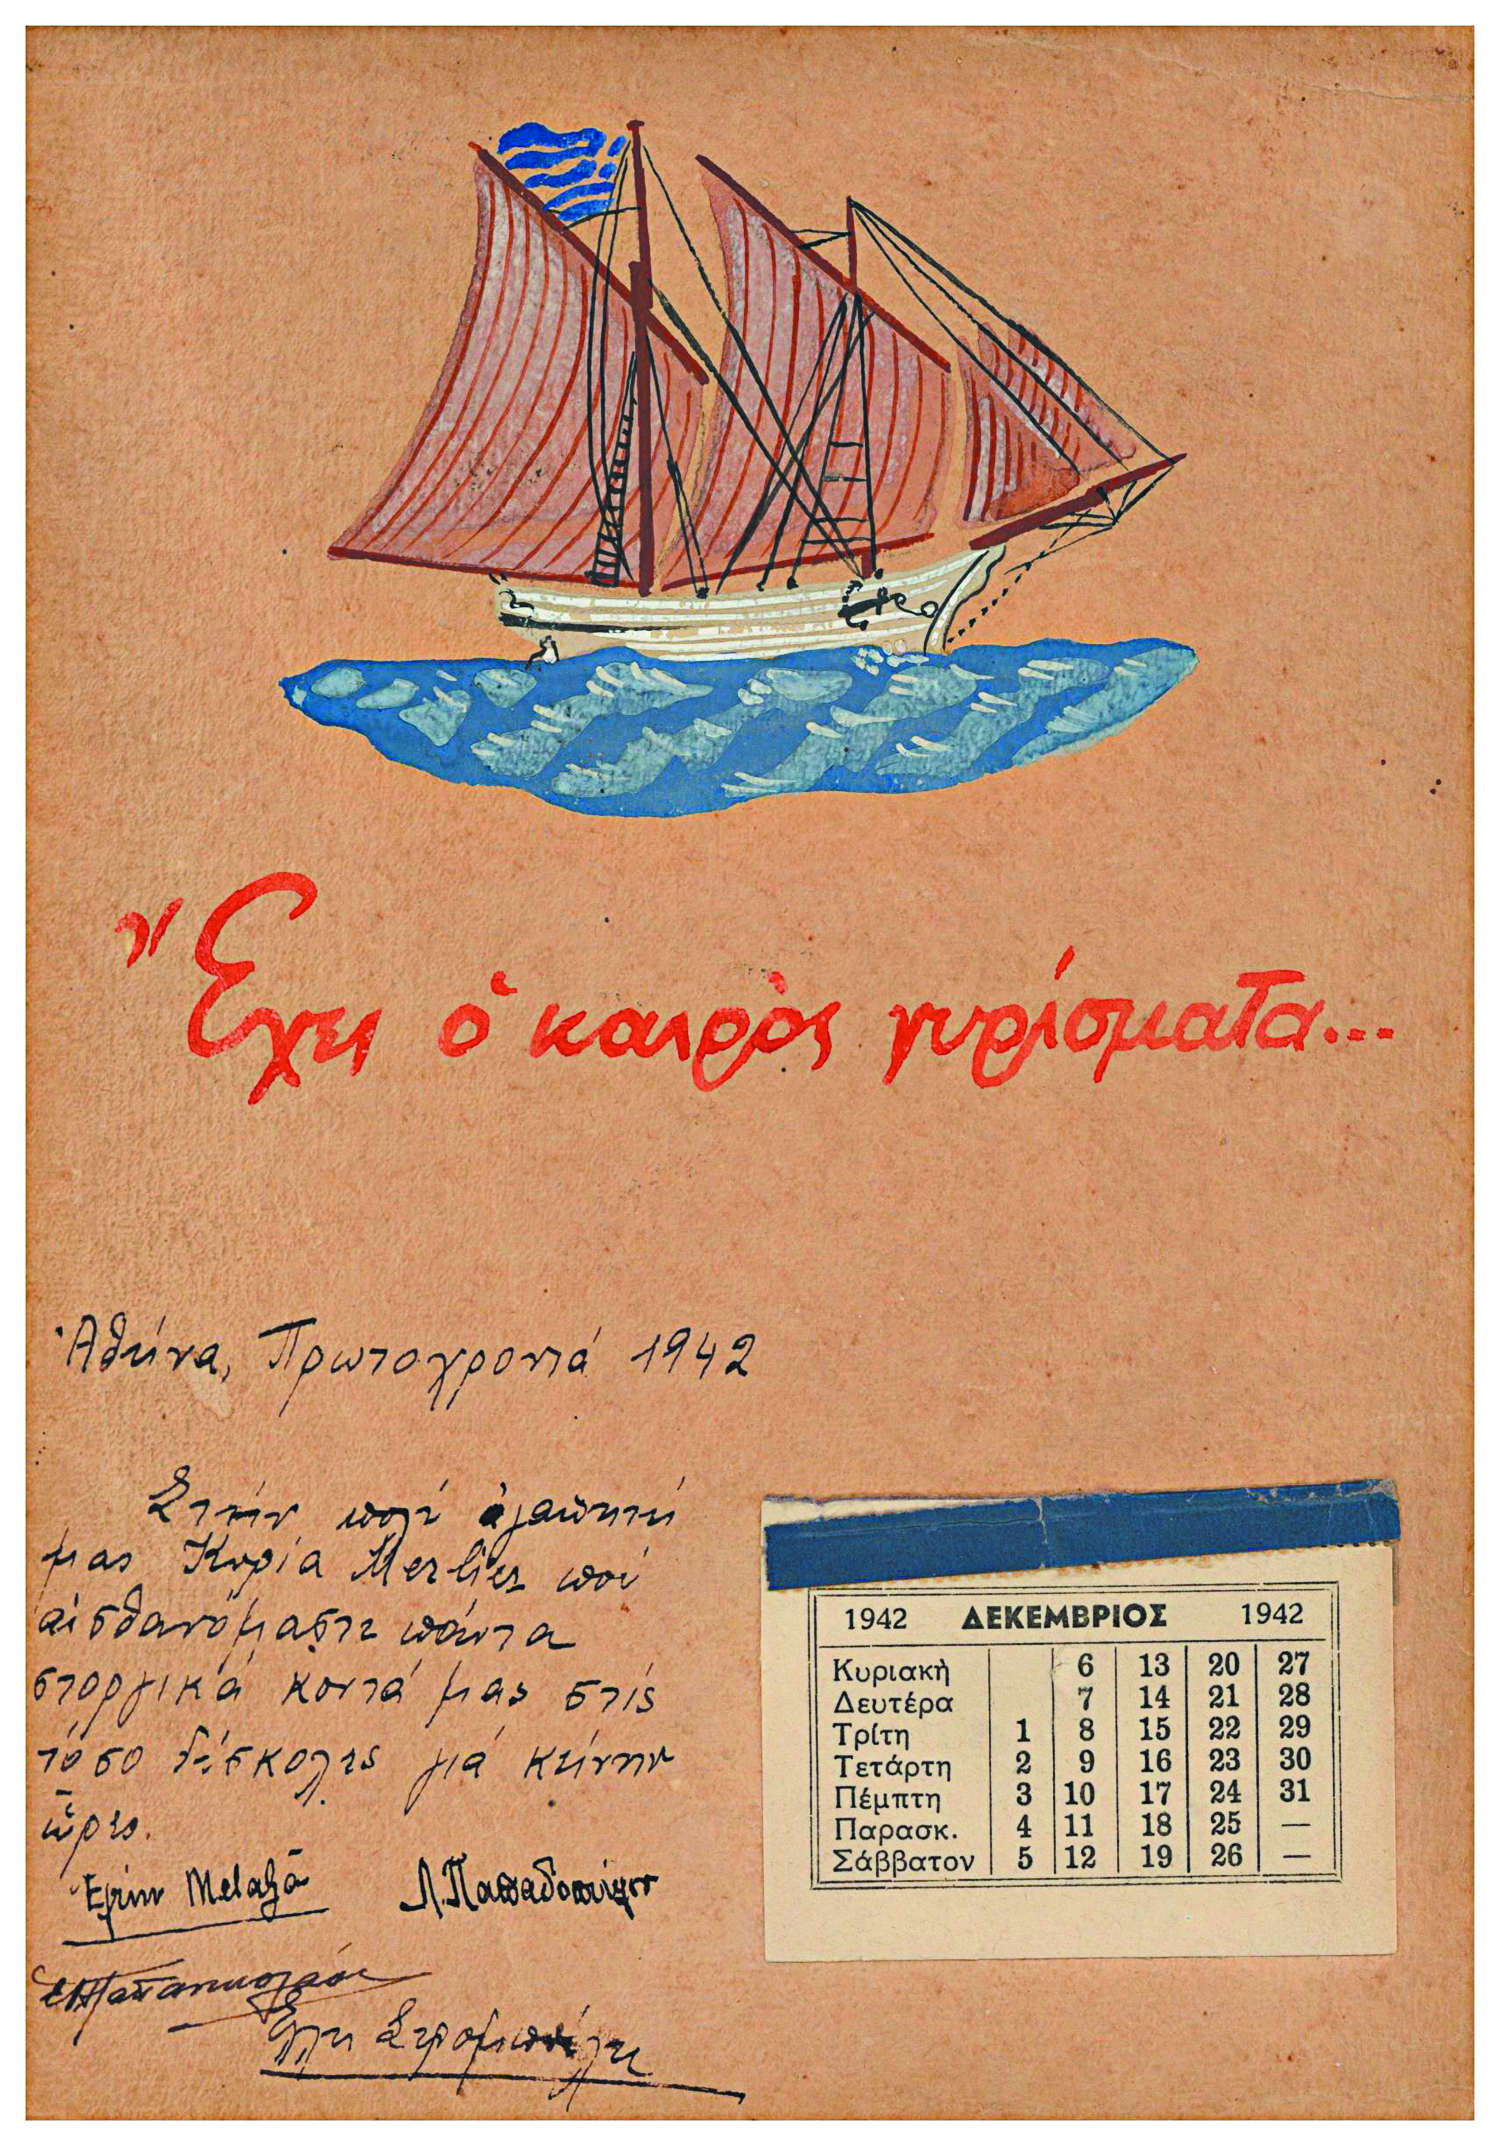 Ἔχει ὁ καιρὸς γυρίσματα...
Ἀθήνα, Πρωτοχρονιά 1942
Στήν πολύ ἀγαπητή
μας Κυρία Merlier πού
αἰσθανόμαστε πάντα
στοργικά κοντά μας στίς
τόσο δύσκολες γιά κείνην
ὧρες.
Μελαξᾶ Λ. Παπαδοπούλου
Παπανικολάου
Ἕλλη
1942 ΔΕΚΕΜΒΡΙΟΣ 1942
Κυριακὴ 6 13 20 27
Δευτέρα 7 14 21 28
Τρίτη 1 8 15 22 29
Τετάρτη 2 9 16 23 30
Πέμπτη 3 10 17 24 31
Παρασκ. 4 11 18 25 —
Σάββατον 5 12 19 26 —